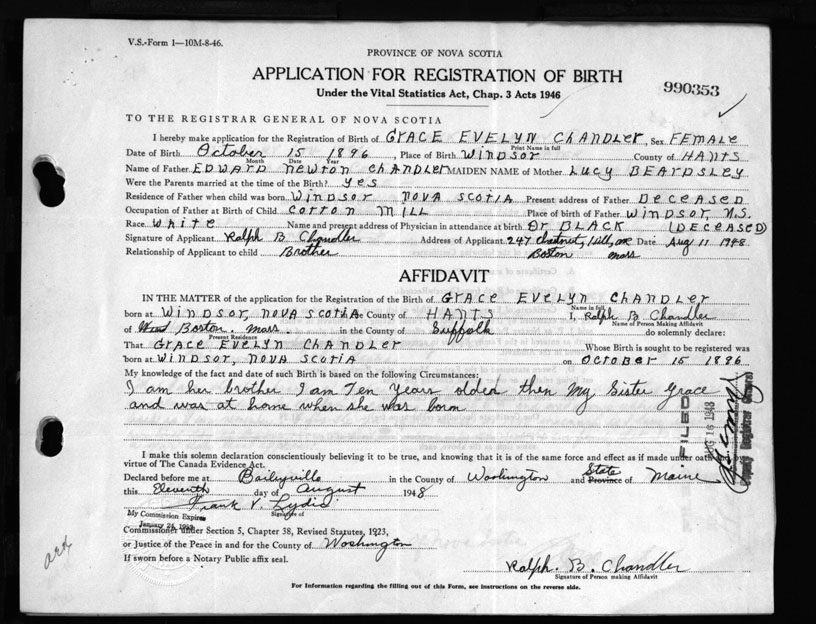 V.S.-Form 1—10M-8-46.
PROVINCE OF NOVA SCOTIA
APPLICATION FOR REGISTRATION OF BIRTH
990353
Under the Vital Statistics Act, Chap. 3 Acts 1946
TO THE REGISTRAR GENERAL OF NOVA SCOTIA
I hereby make application for the Registration of Birth of GRACE EVELYN CHANDLER, Sex FEMALE
Print Name in full
Date of Birth October 15 1896, Place of Birth WINDSOR County of HANTS
Month Date Year
Name of Father EDWARD NEWTON CHANDLER MAIDEN NAME of Mother LUCY BEARDSLEY
Were the Parents married at the time of the Birth? yes
Residence of Father when child was born WINDSOR NOVA SCOTIA Present address of Father DECEASED
Occupation of Father at Birth of Child COTTON MILL Place of birth of Father WINDSOR, N.S.
Race WHITE Name and present address of Physician in attendance at birth Dr BLACK (DECEASED)
Signature of Applicant Ralph B Chandler Address of Applicant 247 Chestnut Hill, ave Date Aug 11 1948
Relationship of Applicant to child Brother Boston Mass
AFFIDAVIT
IN THE MATTER of the application for the Registration of the Birth of GRACE EVELYN CHANDLER
Name in full
born at WINDSOR, NOVA SCOTIA County of HANTS I, Ralph B Chandler
Name of Person Making Affidavit
of Boston. Mass. in the County of Suffolk do solemnly declare:
Present Residence
That GRACE EVELYN CHANDLER Whose Birth is sought to be registered was
born at WINDSOR, NOVA SCOTIA on OCTOBER 15 1896
My knowledge of the fact and date of such Birth is based on the following Circumstances:
I am her brother I am Ten Years older then My Sister Grace
and was at home when she was born
FILED
AUG 16 1948
Deputy Registrar General
I make this solemn declaration conscientiously believing it to be true, and knowing that it is of the same force and effect as if made under oath and by
virtue of The Canada Evidence Act.
Declared before me at Baileyville in the County of Washington and State Province of Maine
this Eleventh day of August 1948
Frank V. Lydic
Signature of
My Commission Expires
January 24,
Commissioner under Section 5, Chapter 38, Revised Statutes, 1923,
or Justice of the Peace in and for the County of Washington
If sworn before a Notary Public affix seal.
Ralph. B. Chandler
Signature of Person making Affidavit
For Information regarding the filling out of this Form, see instructions on the reverse side.